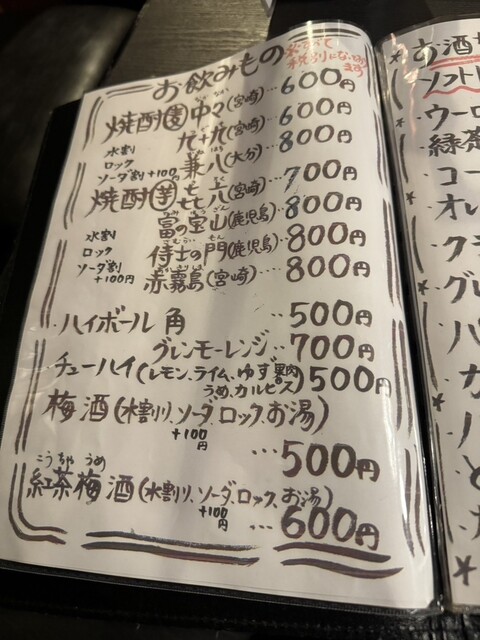 お飲みもの
すべて
税別になっており
ます
焼酎 麦 中々(宮崎)…600円
九十九(宮崎)…600円
水割
ロック
ソーダ割+100円
兼八(大分)…800円
焼酎 芋 㐂六(宮崎)…700円
富の宝山(鹿児島)…800円
水割
ロック
ソーダ割
+100円
侍士の門(鹿児島)…800円
赤霧島(宮崎)…800円
ハイボール 角 …500円
グレンモーレンジ…700円
チューハイ(レモン、ライム、ゆず果肉 500円
うめ、カルピス)
梅酒(水割り、ソーダ、ロック、お湯)
+100円
…500円
こうちゃ うめ
紅茶梅酒(水割り、ソーダ、ロック、お湯)
+100円
…600円
お酒
ソフト
ウーロ
緑茶
コー
オレ
クラ
グレ